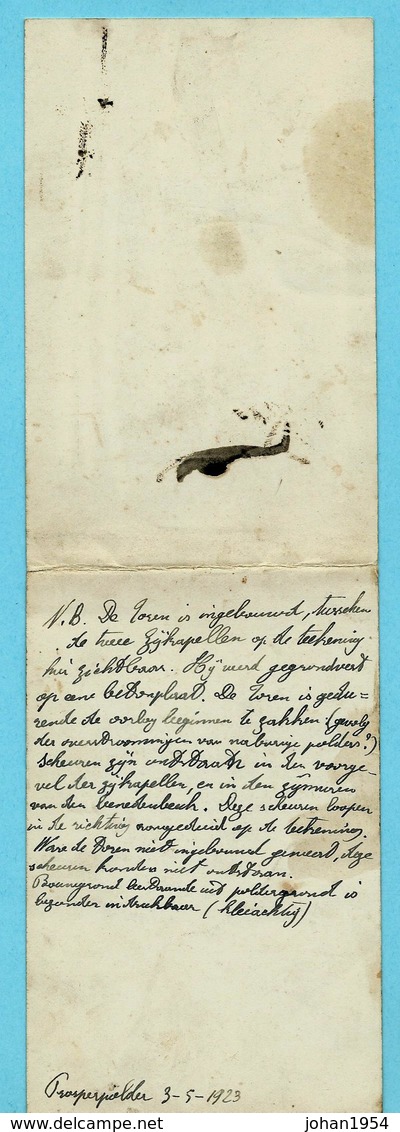 N.B. De Toren is ingebouwd, tusschen
de twee zijkapellen op de teekening
hier zichtbaar. Hij werd gegrondvest
op eene betonplaat. De Toren is gedu=
rende de oorlog beginnen te zakken (gevolg
der overstroomingen van naburige polders?)
Scheuren zijn ontstaan in den voorge-
vel der zijkapellen, en in den zijmuren
van den benedenbeuk. Deze scheuren loopen
in de richting aangeduid op de teekening.
Ware de Toren niet ingebouwd geweest, deze
scheuren konden niet ontstaan.
Bouwgrond bestaande uit poldergrond is
bezonder indrukbaar (kleiachtig)
Prosperpolder 3-5-1923
delcampe.net
johan1954